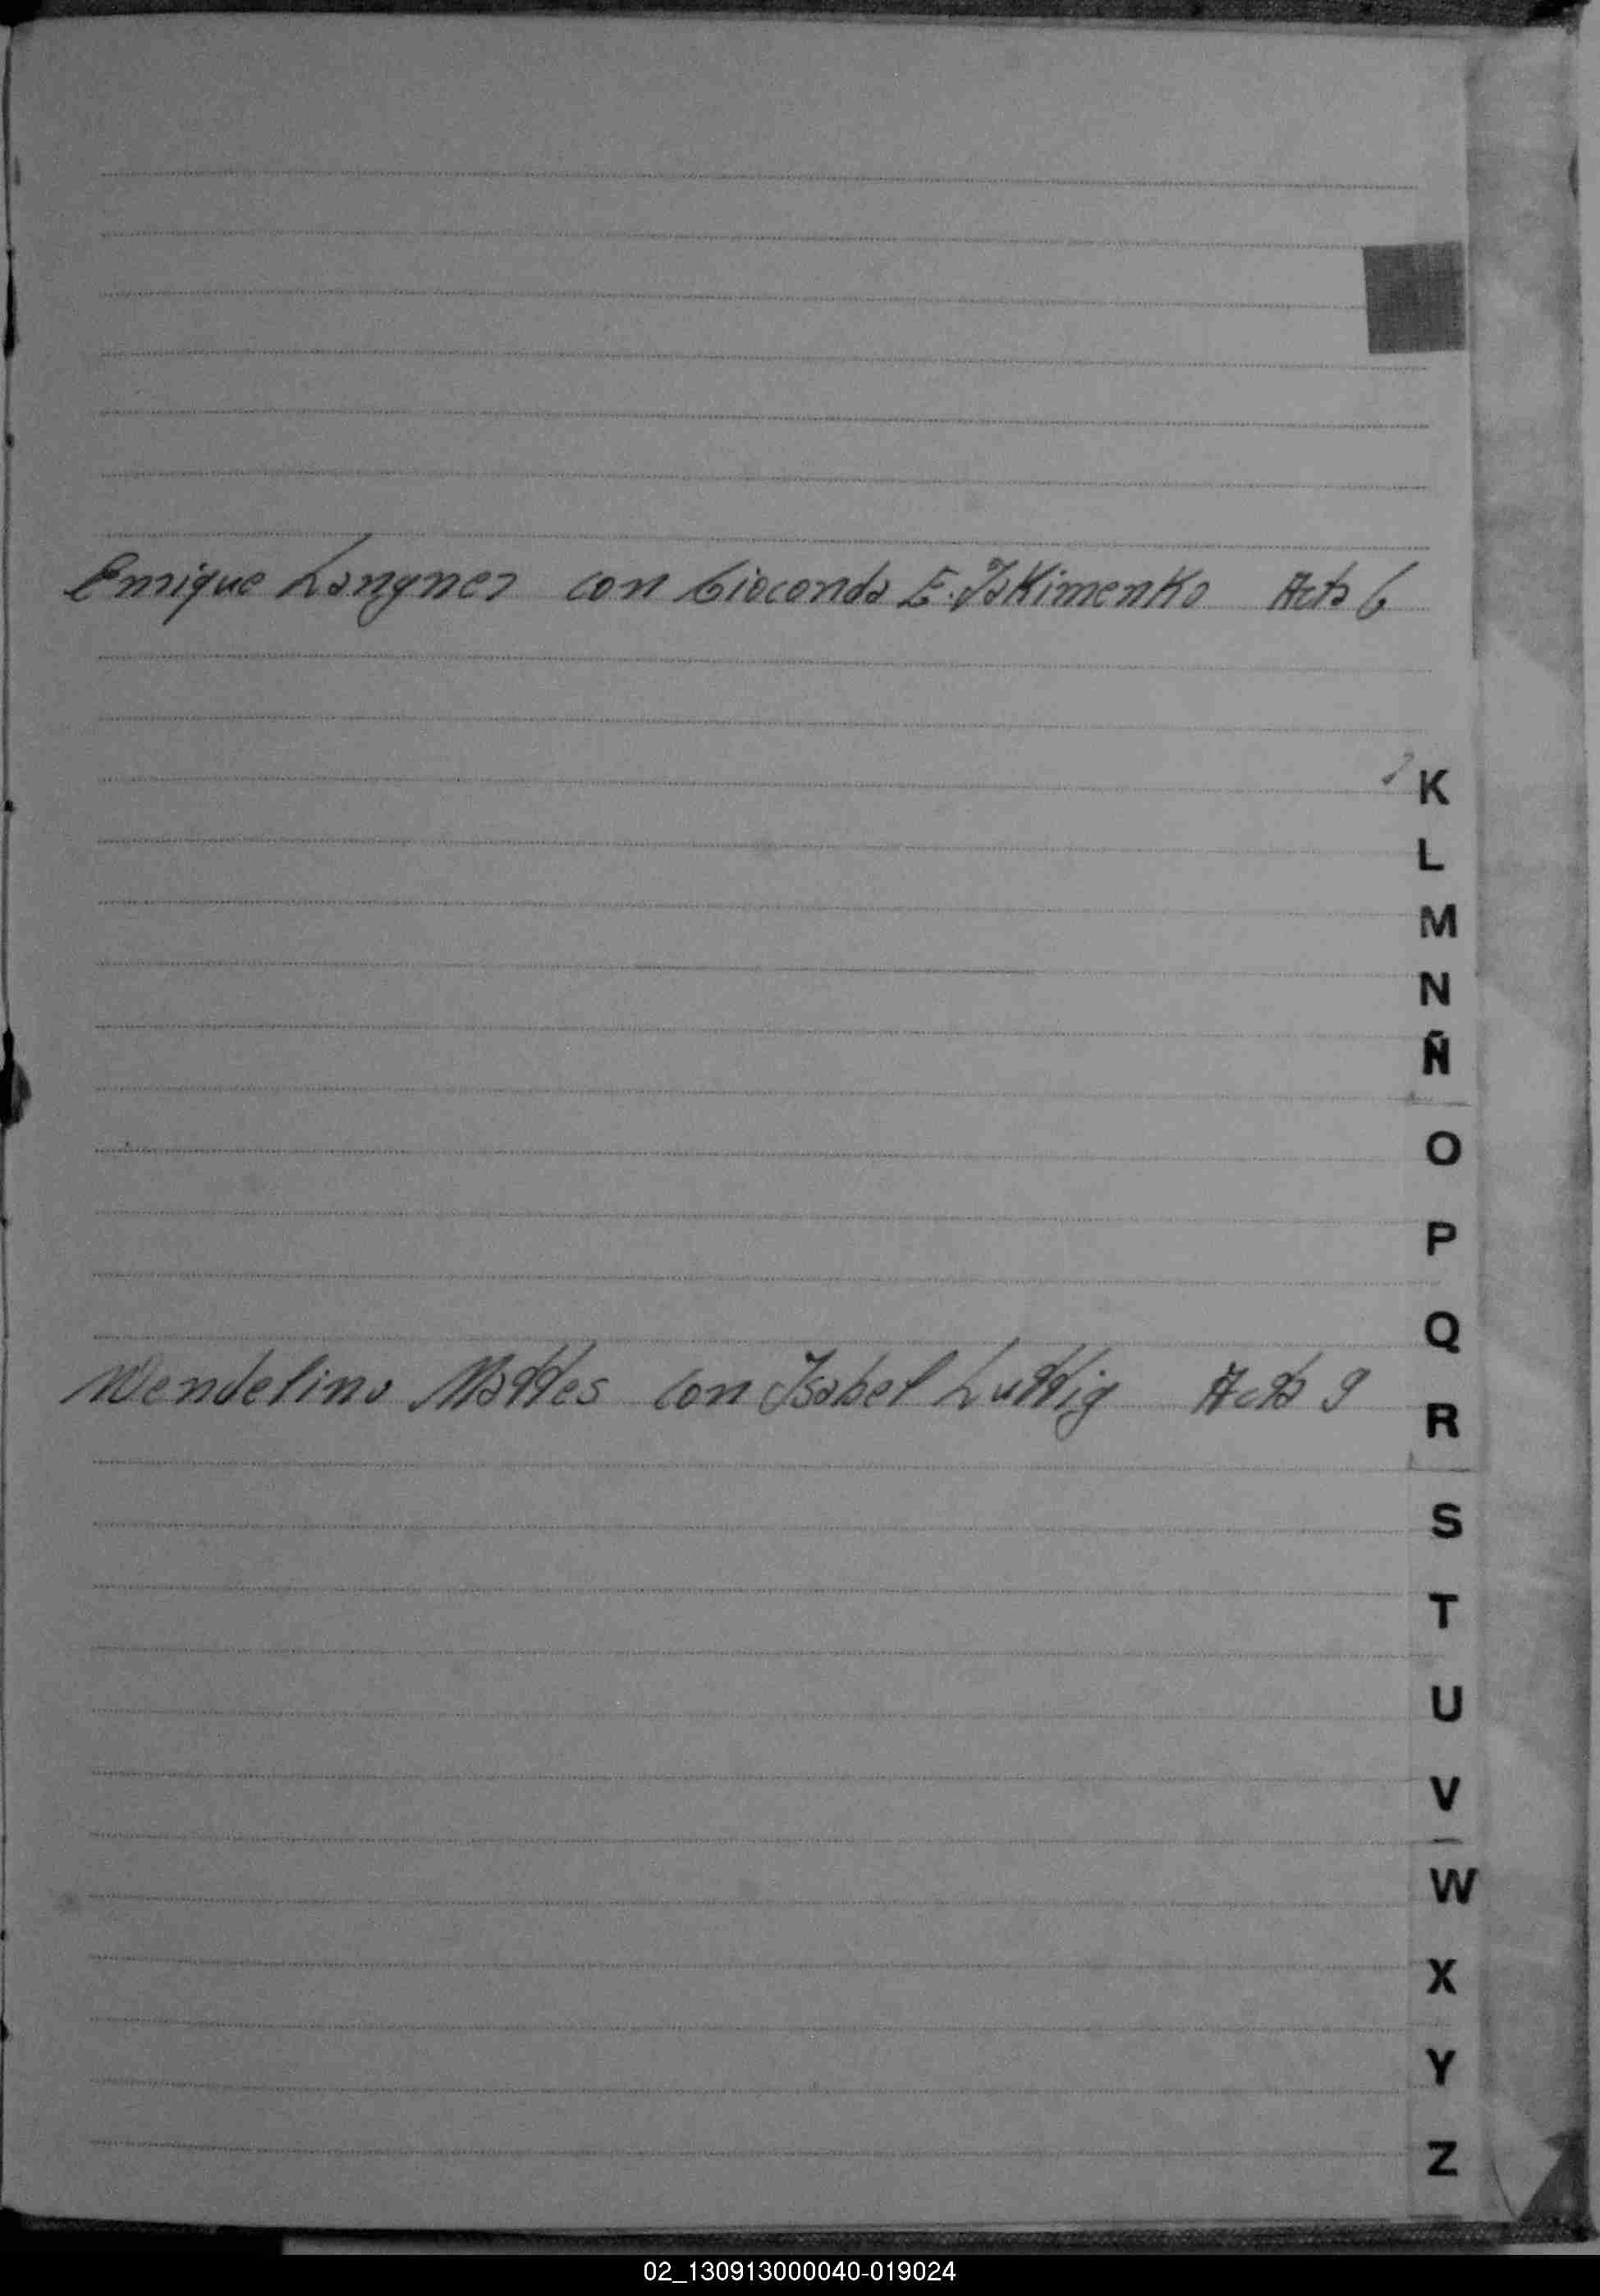 Enrique Langner con Gioconda E. Iakimenko Acta 6
K
L
M
N
Ñ
O
P
Q
Wendelino Mattes con Isabel Luttig Acta 9
R
S
T
U
V
W
X
Y
Z
02_130913000040-019024